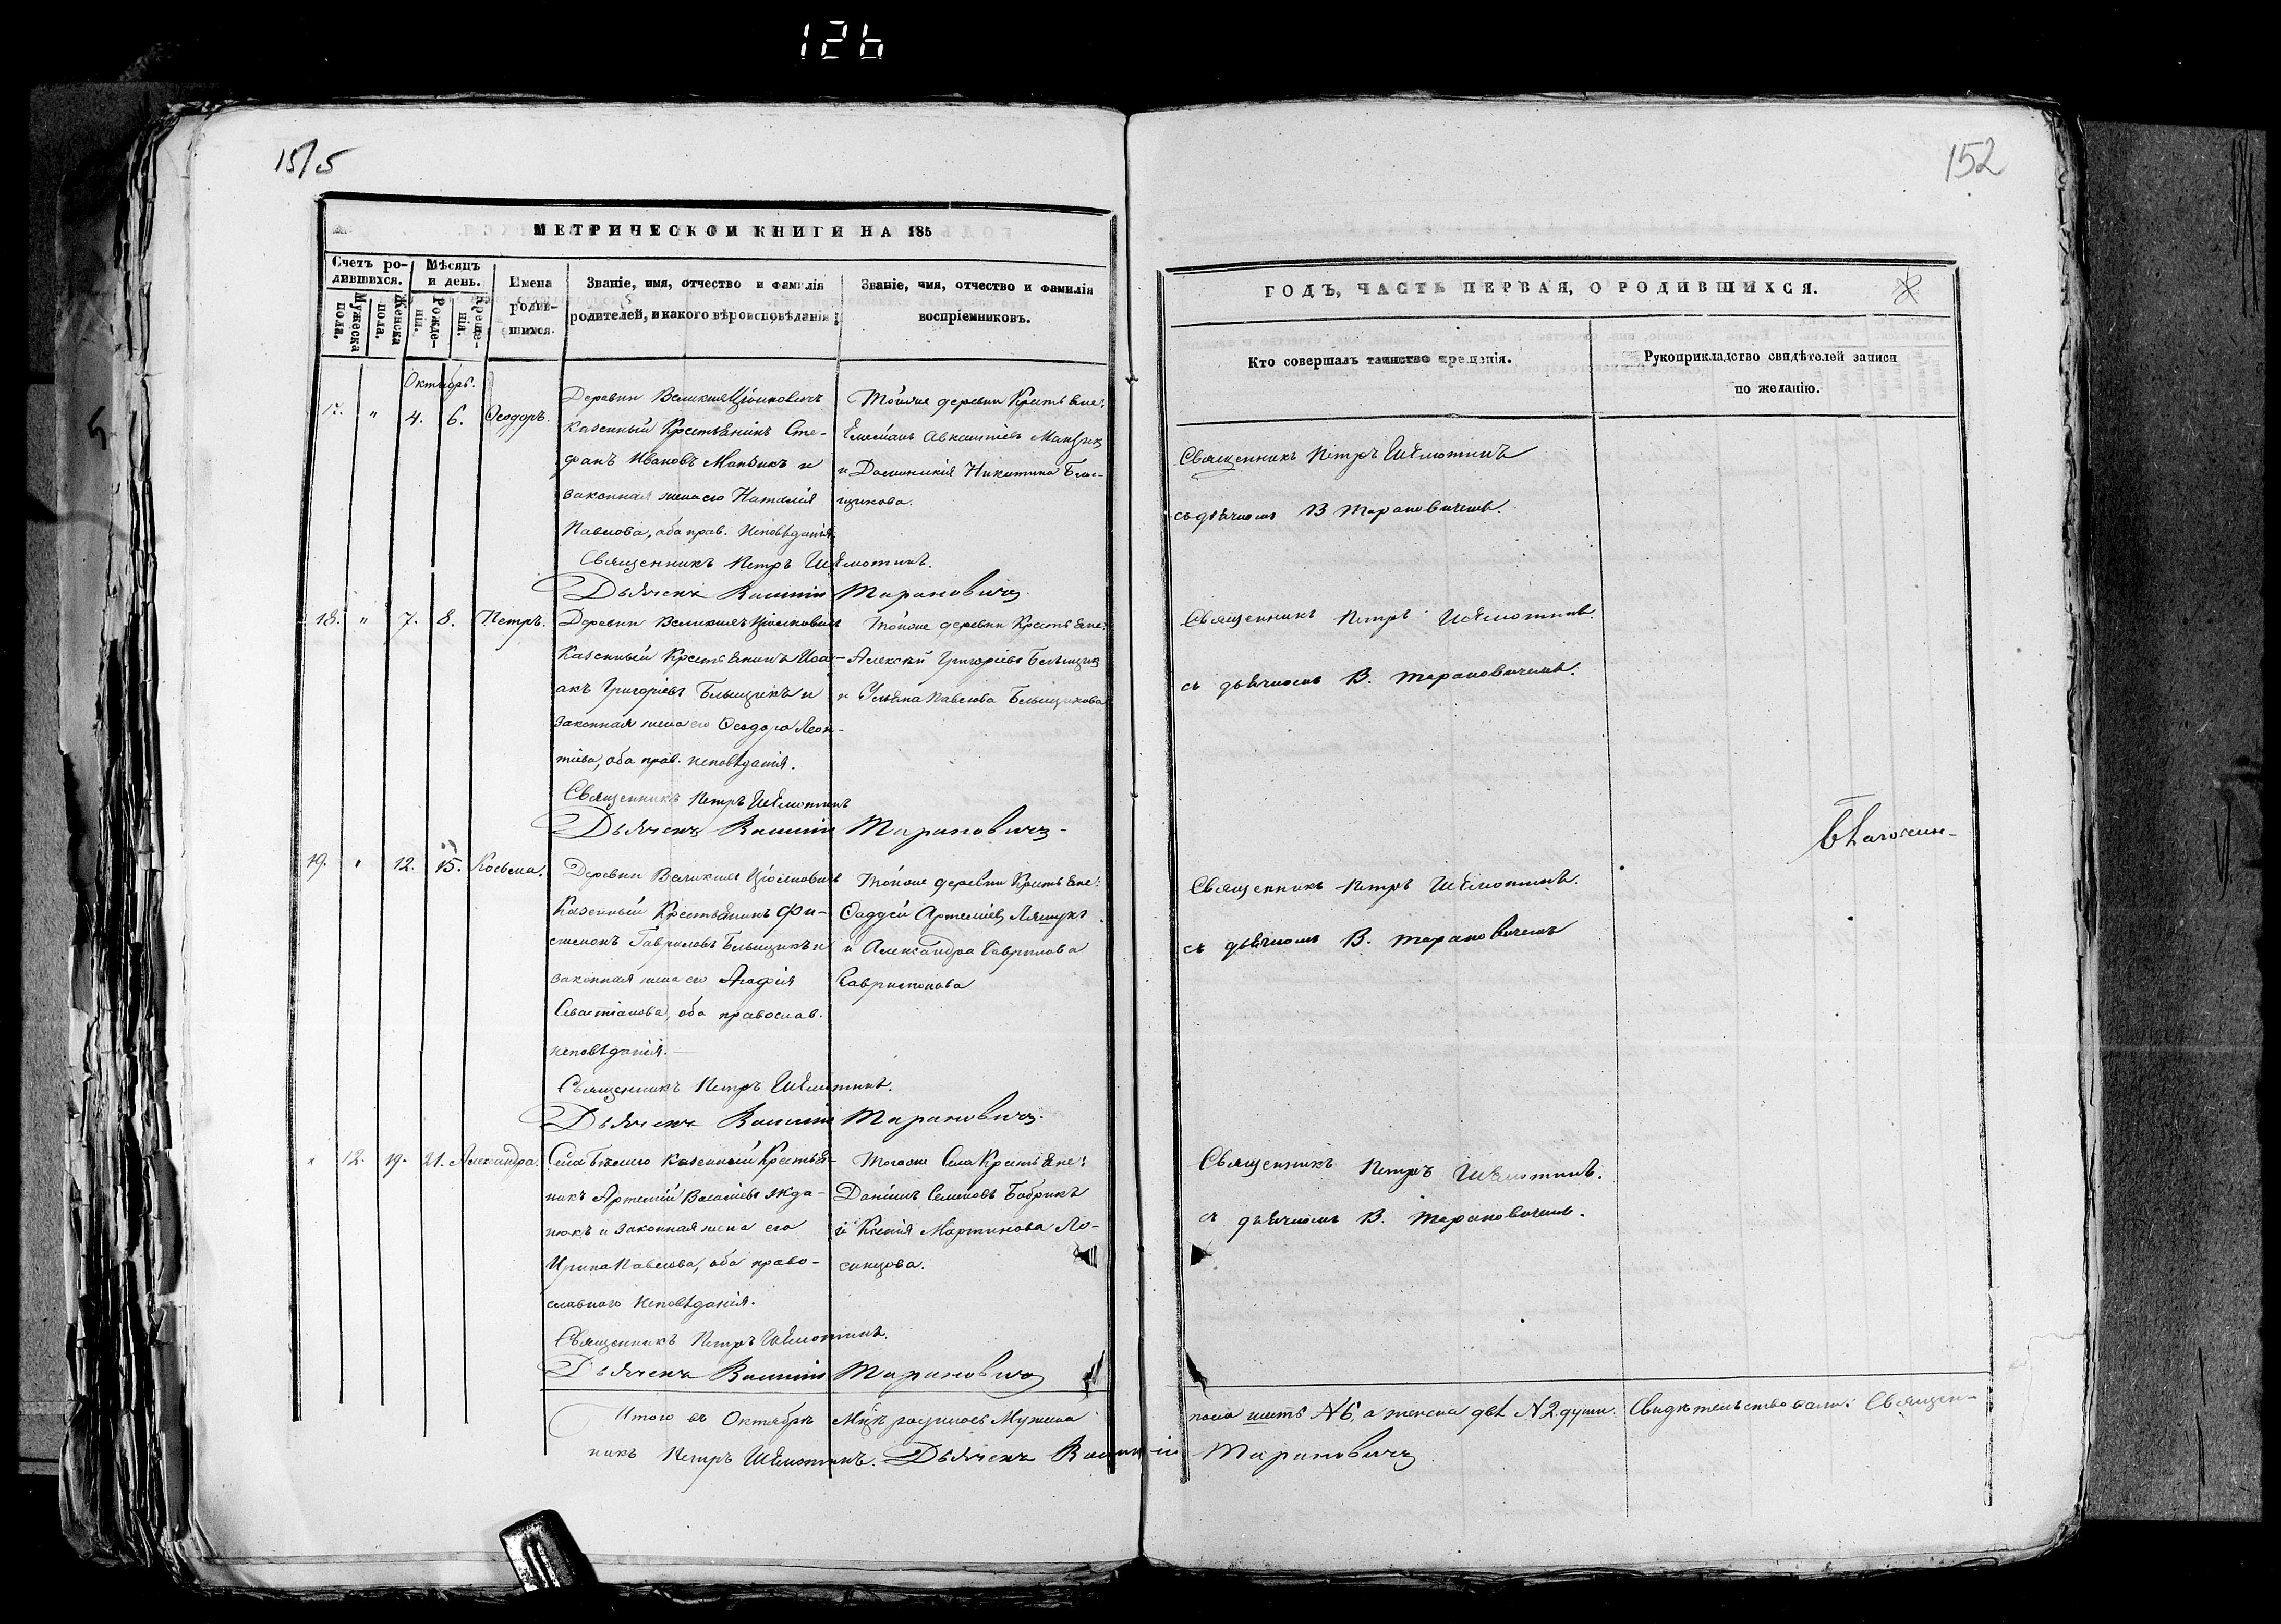 126
1515
152
МЕТРИЧЕСКОЙ КНИГИ НА 185
Счетъ ро-
дившихся.
Мужеска пола.
Женска пола.
Мѣсяцъ
и день.
Рожде-
нія.
Креще-
нія.
Имена
родив-
шихся.
Званіе, имя, отчество и фамилія
родителей, и какого вѣроисповѣданія
Званіе, имя, отчество и фамилія
воспріемниковъ.
Октябрь.
17. " 4. 6. Ѳеодоръ.
Деревни Великихъ Цѣпковичъ
казенный Крестьянинъ Сте-
фанъ Ивановъ Мандзикъ и
законная жена его Наталія
Павлова, оба прав. исповѣданія.
Тойже деревни Крестьяне:
и Домникія Никитина Бель-
щикова.
Священникъ Петръ
Дьячекъ Василій Тарановичъ
18. " 7. 8. Петръ.
Деревни Великихъ Цѣпковичъ
Казенный Крестьянинъ Иса-
акъ Григоріевъ Бельщикъ и
законная жена его Ѳеодора Леон-
тіева, оба прав. исповѣданія.
Тойже деревни Крестьяне:
Алексѣй Григорьевъ Бельщикъ
и Ульяна Павлова Бельщикова
Священникъ Петръ
Дьячекъ Василій Тарановичъ
19. " 12. 15. Косьма.
Деревни Великихъ Цѣпковичъ
Казенный Крестьянинъ Фи-
лимонъ Гавриловъ Бельщикъ и
законная жена его Агафія
Севастіанова, оба православ.
исповѣданія.
Тойже деревни Крестьяне:
Ѳаддей Артеміевъ Ляшукъ
и Александра Гаврилова
Священникъ Петръ
Дьячекъ Василій Тарановичъ
" 12. 19. 21. Александра.
Села Бѣлаго казенный Крестья-
нинъ Артемій Власіевъ Жда-
нюкъ и законная жена его
Ирина Павлова, оба право-
славнаго исповѣданія.
Тогоже Села Крестьяне:
Даніилъ Семеновъ Бобрикъ
и Ксенія Мартинова Ло-
синцова.
Священникъ Петръ
Дьячекъ Василій Тарановичъ
Итого въ Октябрѣ Мцѣ родилось Мужеска
никъ Петръ Дьячекъ Василій
ГОДЪ, ЧАСТЬ ПЕРВАЯ, О РОДИВШИХСЯ.
Кто совершалъ таинство крещенія.
Рукоприкладство свидѣтелей записи
по желанію.
Священникъ Петръ
съ дьячкомъ В Тарановичемъ.
Священникъ Петръ
съ дьячкомъ В. Тарановичемъ.
Благочин-
Священникъ Петръ
съ дьячкомъ В. Тарановичемъ
Священникъ Петръ
съ дьячкомъ В. Тарановичемъ.
пола шесть №6, а женска двѣ №2 души. Свидѣтельствовали: Священ-
Тарановичъ